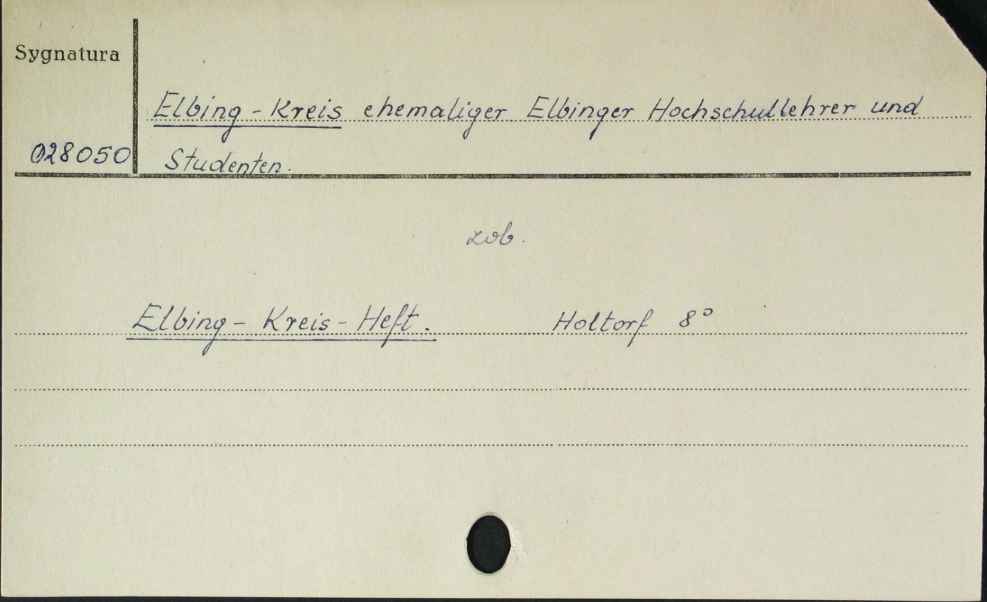 Sygnatura
Elbing-Kreis ehemaliger Elbinger Hochschullehrer und
028050 Studenten.
zob.
Elbing-Kreis-Heft. Holtorf 8°